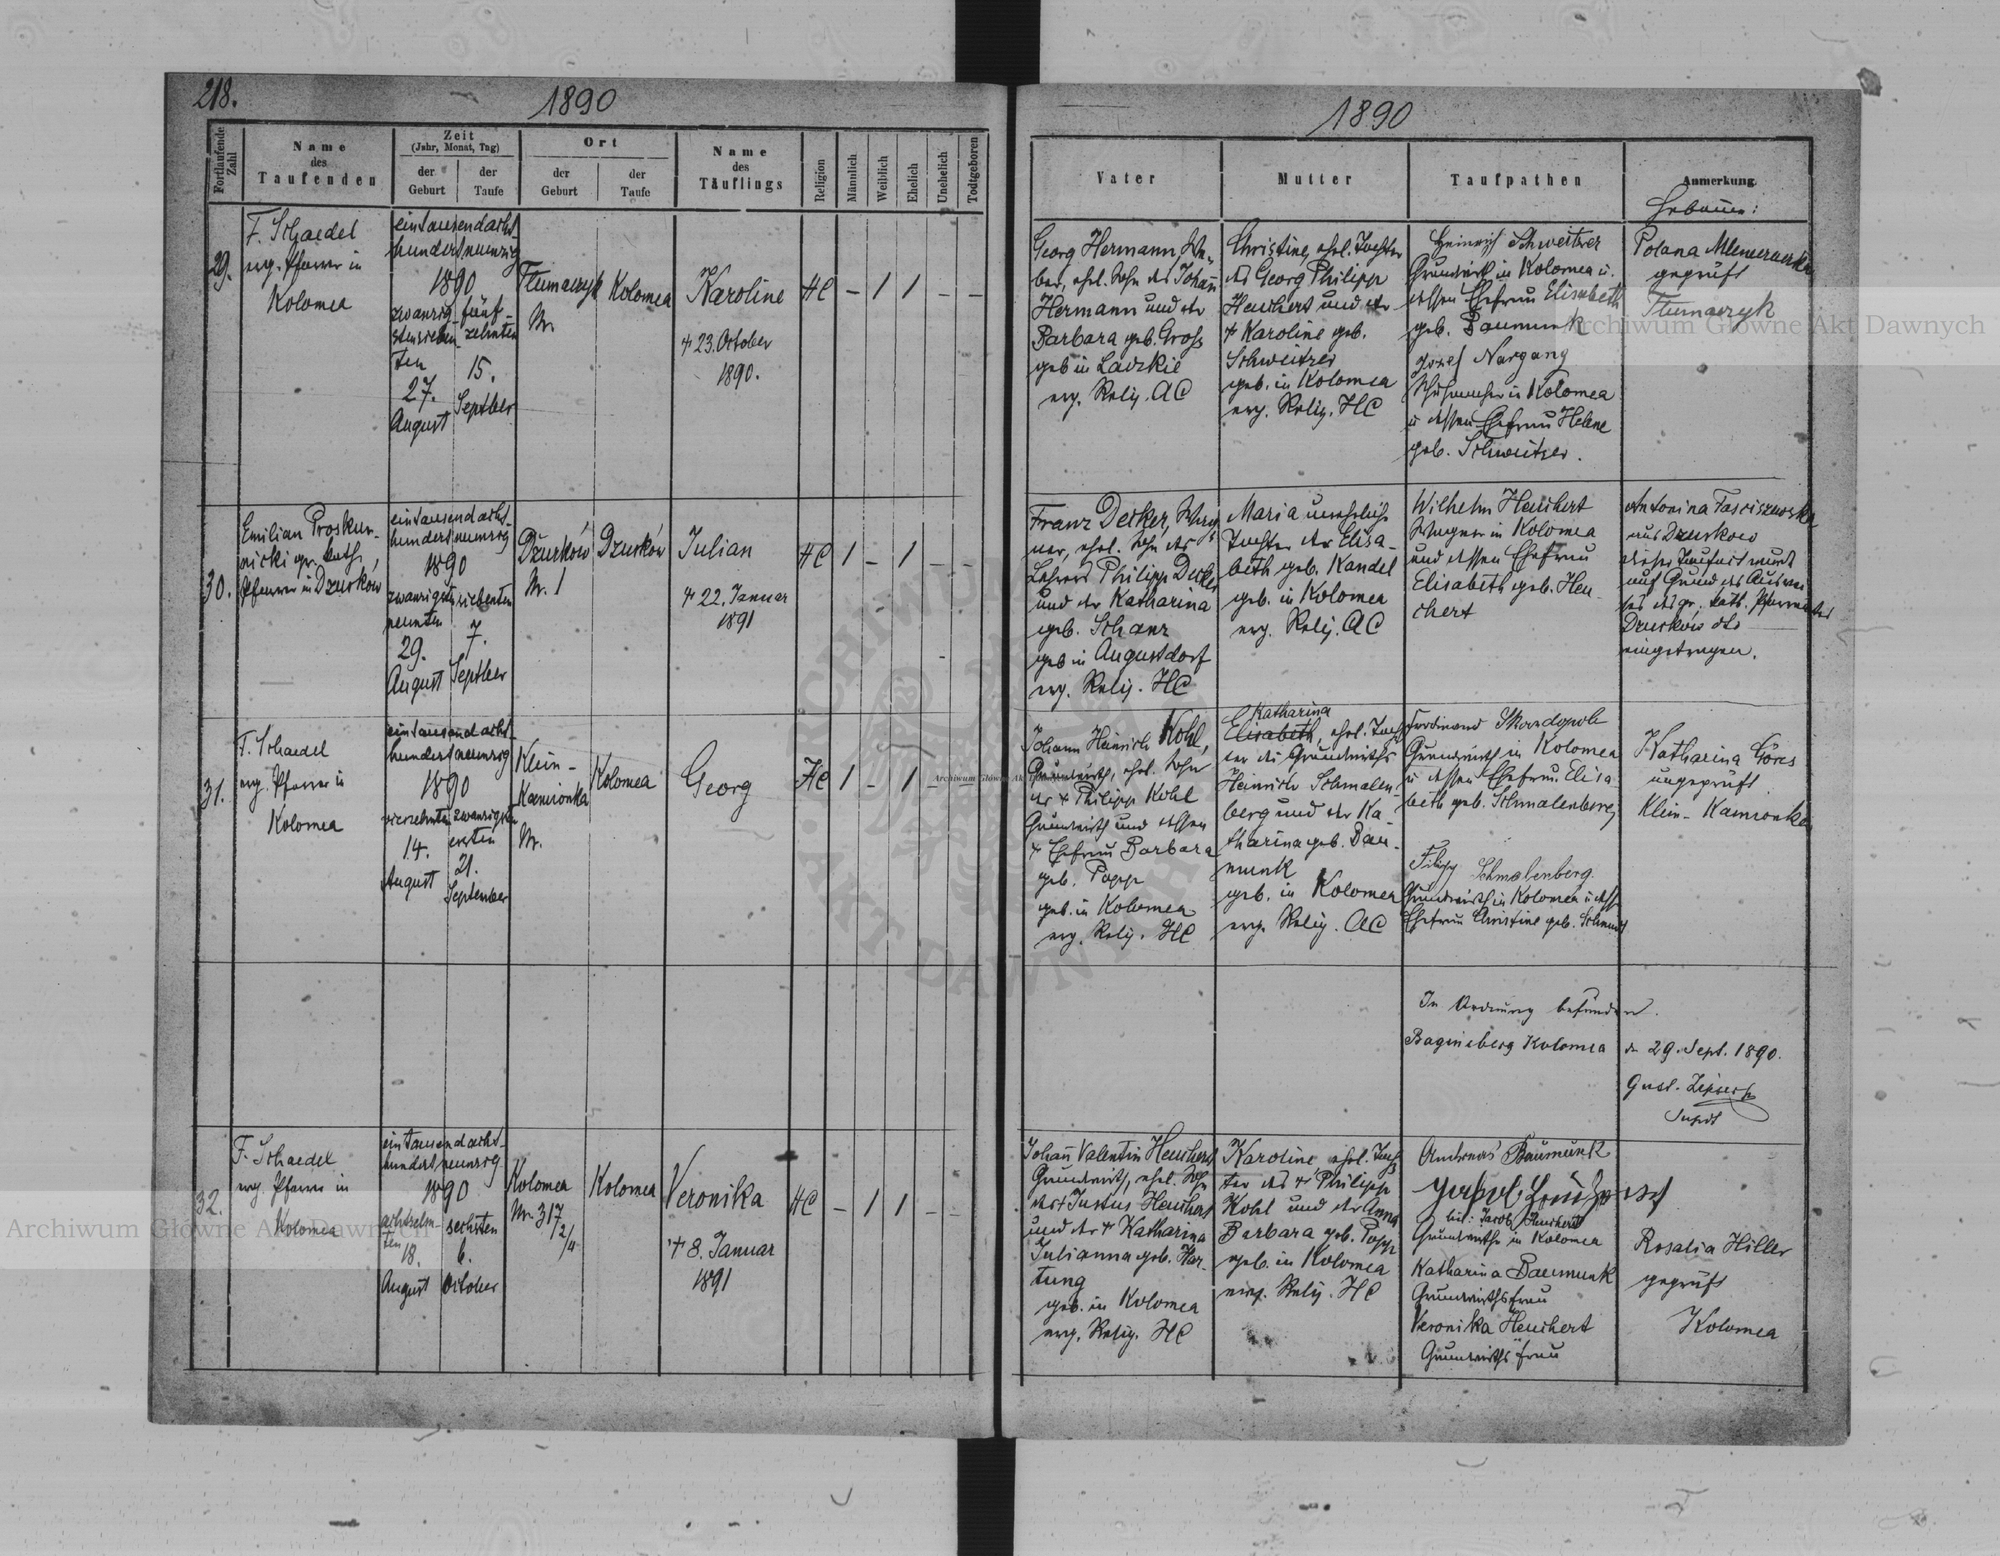 218.
1890
Fortlaufende Zahl
Name des Taufenden
Zeit
(Jahr, Monat, Tag)
der Geburt
der Taufe
Ort
der Geburt
der Taufe
Name des Täuflings
Religion
Männlich
Weiblich
Ehelich
Unehelich
Todtgeboren
29.
F. Schaedel
evg. Pfarrer in
Kolomea
eintausendacht
hundertneunzig
1890
zwanzig
ten
27.
August
fünf-
zehnten
15.
Septber
Tlumaczyk
Nr.
Kolomea
Karoline
† 23. October
1890.
HC
— 1 1 — —
30.
Emilian Proskur-
nicki gr. kath.
Pfarrer in Dzurków
eintausendacht-
hundertneunzig
1890
zwanzigst
neunten
29.
August
siebenten
7.
Septber
Dzurków
Nr. 1
Dzurków
Julian
† 22. Januar
1891
HC
1 — 1 — —
31.
F. Schaedel
evg. Pfarrer in
Kolomea
eintausendacht-
hundertneunzig
1890
vierzehnten
14.
August
zwanzigsten
ersten
21.
September
Klein-
Kamionka
Nr.
Kolomea
Georg
HC
1 — 1 — —
32.
F. Schaedel
evg. Pfarrer in
Kolomea
eintausendacht-
hundertneunzig
1890
achtzehn-
ten
18.
August
sechsten
6.
October
Kolomea
Nr. 317
2/4
Kolomea
Veronika
† 8. Januar
1891
HC
— 1 1 — —
1890
Vater
Mutter
Taufpathen
Anmerkung
Hebamme:
Georg Hermann We-
ber, ehel. Sohn des Johann
Hermann und der
Barbara geb. Gross
geb in Ladzkie
evg. Relig. AC
Christine, ehel. Tochter
des Georg Philipp
Heuchert und der
† Karoline geb.
Schweitzer
geb. in Kolomea
evg. Relig. HC
Heinrich Schweitzer
Grundwirth in Kolomea u.
dessen Ehefrau Elisabeth
geb. Baumunk
Josef Nargang
Schuhmacher in Kolomea
u dessen Ehefrau Helene
geb. Schweitzer.
Polana
geprüft
Tlumaczyk
Franz Decker, Wag-
ner, ehel. Sohn des
Lehrers Philipp Decker
und der Katharina
geb. Schanz
geb in Augustdorf
evg. Relig. HC
Maria uneheliche
Tochter der Elisa-
beth geb. Kandel
geb. in Kolomea
evg. Relig. AC
Wilhelm Heuchert
Wagner in Kolomea
und dessen Ehefrau
Elisabeth geb. Heu-
chert
Antonina
aus Dzurkow
dieser Taufact wurde
auf Grund des Auswei-
ses des gr. kath. Pfarramtes
Dzurków
eingetragen.
Johann Heinrich Kohl,
Grundwirth, ehel. Sohn
des † Philipp Kohl
Grundwirth und dessen
† Ehefrau Barbara
geb. Popp
geb. in Kolomea
evg. Relig. HC
Katharina
Elisabeth, ehel. Toch-
ter des Grundwirths
Heinrich Schmalen-
berg und der Ka-
tharina geb. Bau-
munk
geb. in Kolomea
evg. Relig. AC
Ferdinand Skordopole
Grundwirth in Kolomea
u dessen Ehefrau Elisa-
beth geb. Schmalenberg
Filipp Schmalenberg
Grundwirth in Kolomea u dess
Ehefrau Christine geb. Schmidt
Katharina Göres
ungeprüft
Klein-Kamionka
In Ordnung befunden.
Baginsberg Kolomea
29. Sept. 1890.
Gust. Zipser
Supdt
Johann Valentin Heuchert
Grundwirth, ehel. Sohn
des † Justus Heuchert
und der † Katharina
Julianna geb. Har-
tung
geb. in Kolomea
evg. Relig. HC
Karoline ehel. Toch-
ter des † Philipp
Kohl und der Anna
Barbara geb. Popp
geb. in Kolomea
evg. Relig. HC
Andreas Baumunk
Jacob Heuchert
Grundwirthe in Kolomea
Katharina Baumunk
Grundwirthsfrau
Veronika Heuchert
Grundwirthsfrau
Rosalia Hiller
geprüft
Kolomea
Archiwum Główne Akt Dawnych
Archiwum Główne Akt Dawnych